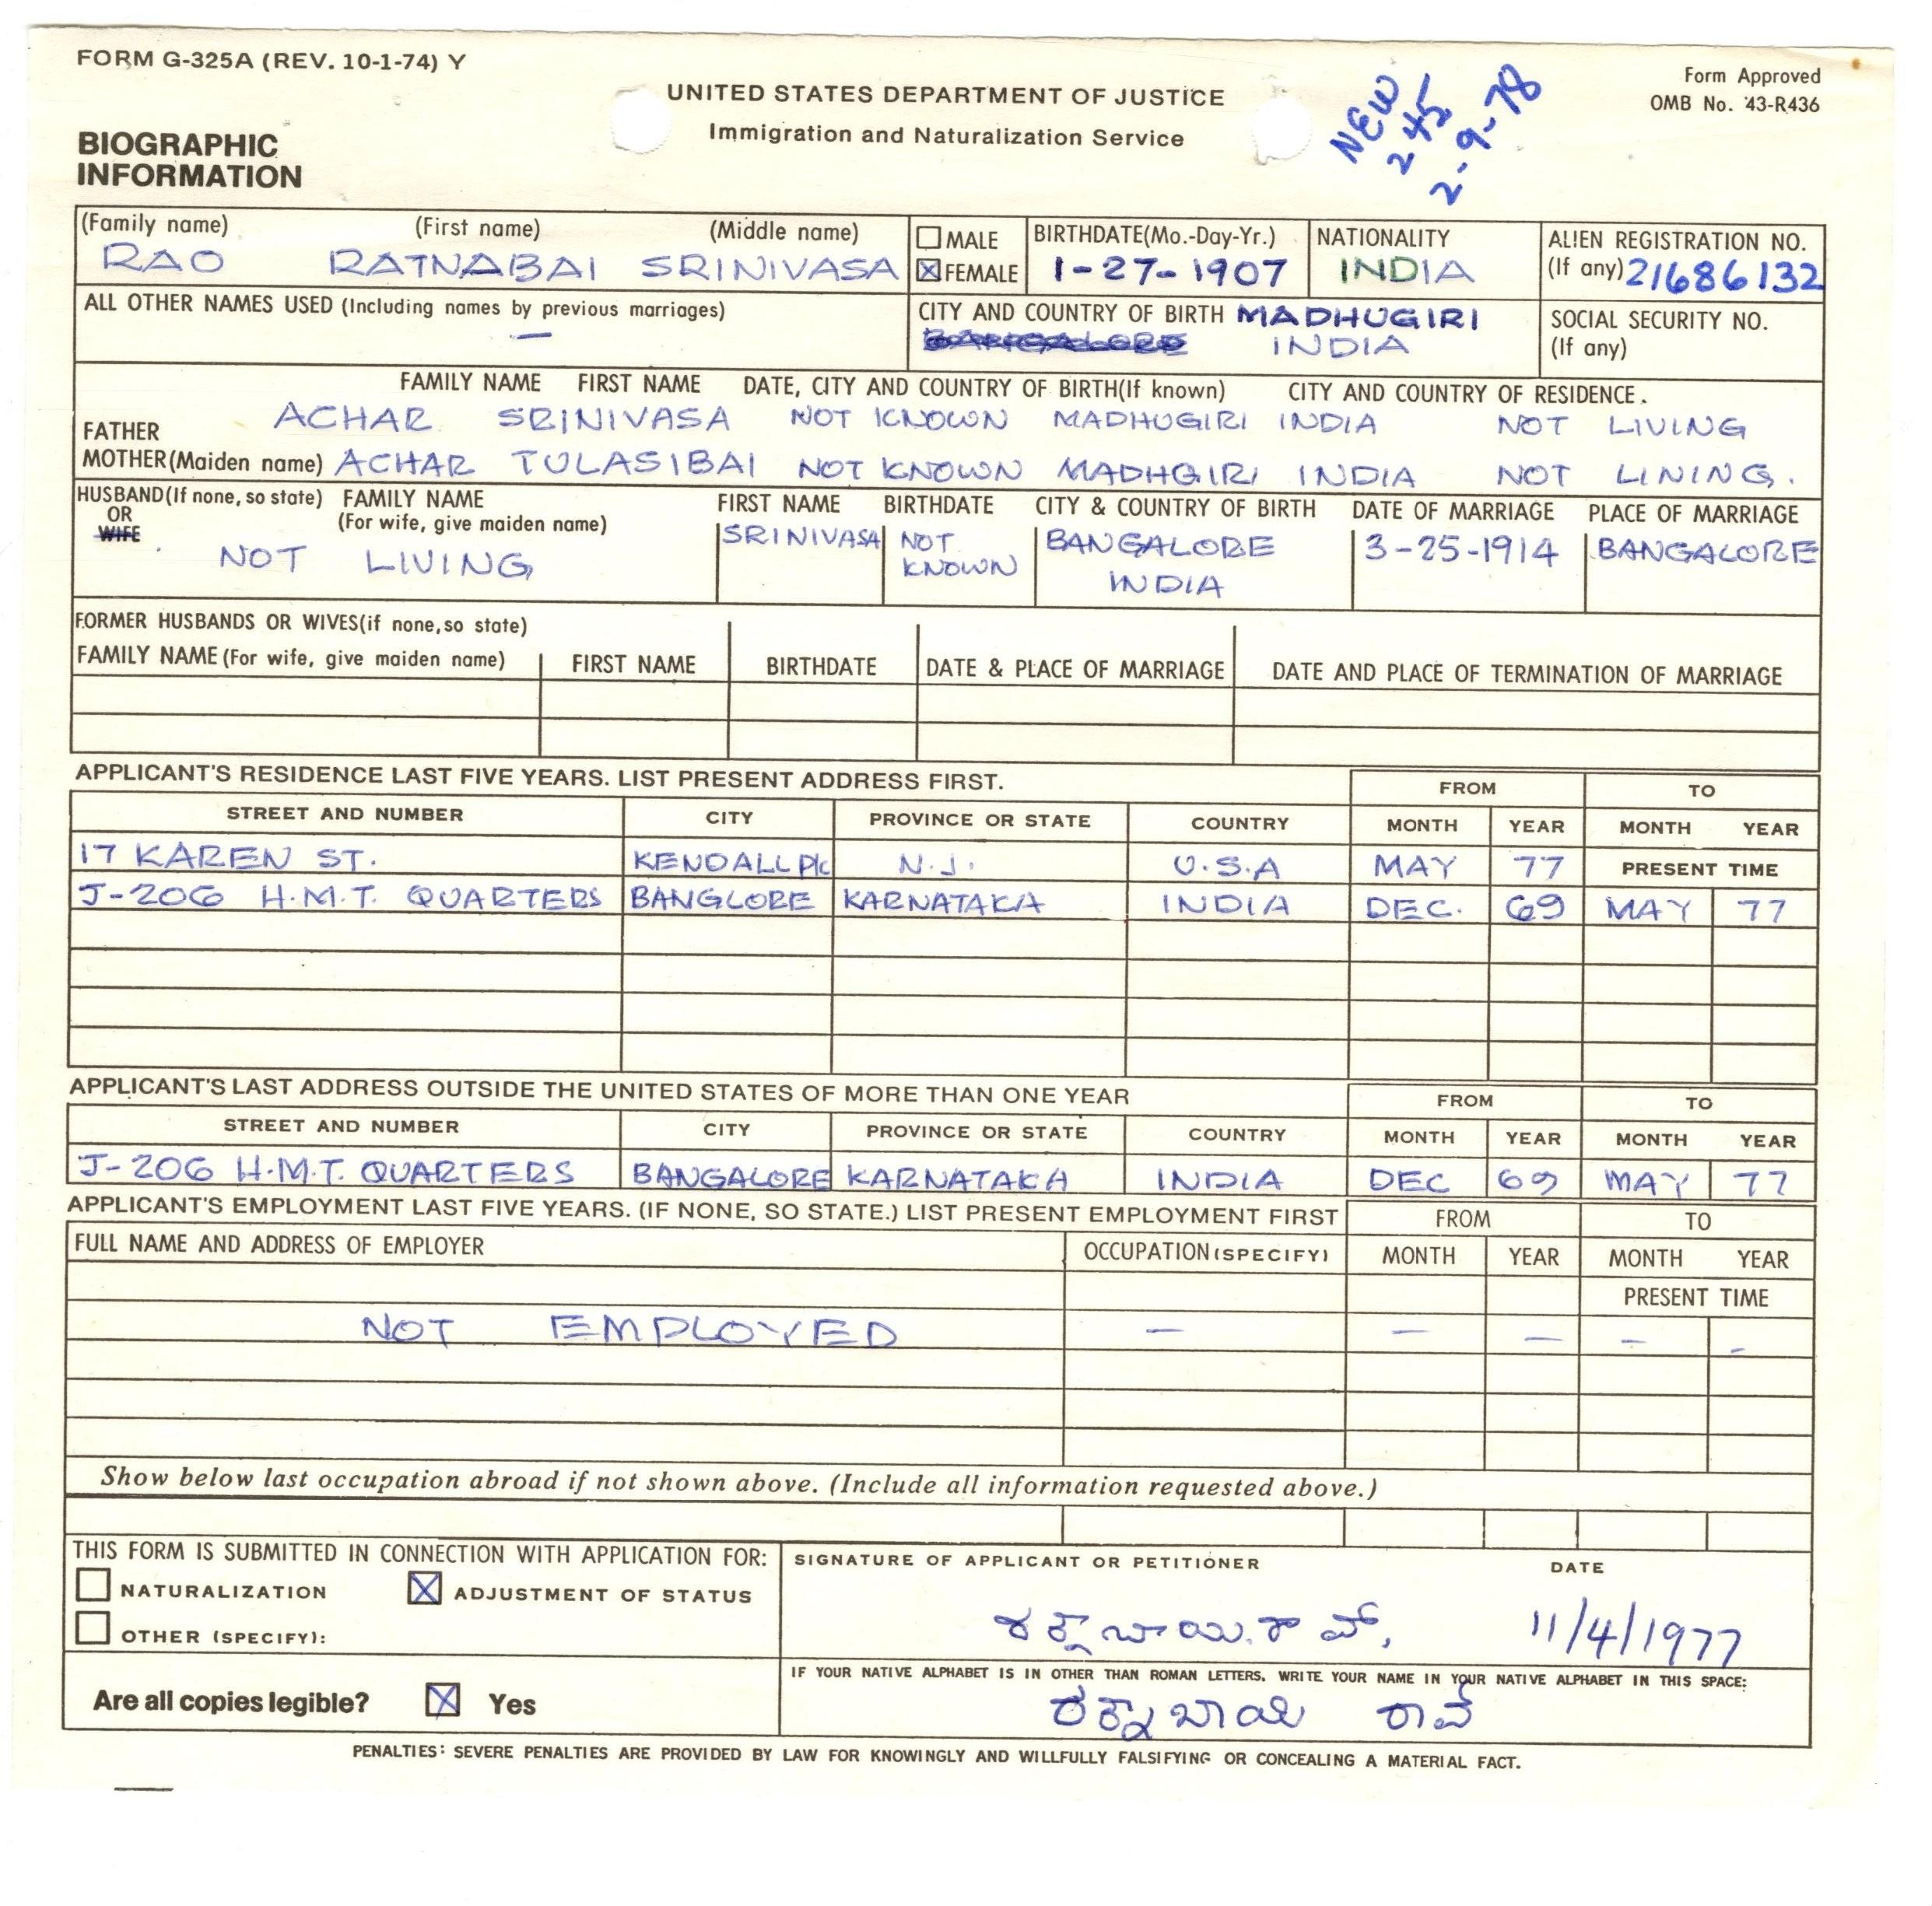 FORM G-325A (REV. 10-1-74) Y
UNITED STATES DEPARTMENT OF JUSTICE
Immigration and Naturalization Service
NEW
245
2-9-78
Form Approved
OMB No. 43-R436
BIOGRAPHIC
INFORMATION
(Family name) (First name) (Middle name)
RAO RATNABAI SRINIVASA
MALE
FEMALE
BIRTHDATE(Mo.-Day-Yr.)
1-27-1907
NATIONALITY
INDIA
ALIEN REGISTRATION NO.
(If any) 21686132
ALL OTHER NAMES USED (Including names by previous marriages)
—
CITY AND COUNTRY OF BIRTH MADHUGIRI
BANGALORE INDIA
SOCIAL SECURITY NO.
(If any)
FAMILY NAME FIRST NAME DATE, CITY AND COUNTRY OF BIRTH(If known) CITY AND COUNTRY OF RESIDENCE.
FATHER ACHAR SRINIVASA NOT KNOWN MADHUGIRI INDIA NOT LIVING
MOTHER(Maiden name) ACHAR TULASIBAI NOT KNOWN MADHGIRI INDIA NOT LINING.
HUSBAND(If none, so state)
OR
WIFE
FAMILY NAME
(For wife, give maiden name)
NOT LIVING
FIRST NAME
SRINIVASA
BIRTHDATE
NOT
KNOWN
CITY & COUNTRY OF BIRTH
BANGALORE
INDIA
DATE OF MARRIAGE
3-25-1914
PLACE OF MARRIAGE
BANGALORE
FORMER HUSBANDS OR WIVES(if none,so state)
FAMILY NAME (For wife, give maiden name) FIRST NAME BIRTHDATE DATE & PLACE OF MARRIAGE DATE AND PLACE OF TERMINATION OF MARRIAGE
APPLICANT'S RESIDENCE LAST FIVE YEARS. LIST PRESENT ADDRESS FIRST. FROM TO
STREET AND NUMBER CITY PROVINCE OR STATE COUNTRY MONTH YEAR MONTH YEAR
17 KAREN ST. KENDALL PK N.J. U.S.A MAY 77 PRESENT TIME
J-206 H.M.T. QUARTERS BANGLORE KARNATAKA INDIA DEC. 69 MAY 77
APPLICANT'S LAST ADDRESS OUTSIDE THE UNITED STATES OF MORE THAN ONE YEAR FROM TO
STREET AND NUMBER CITY PROVINCE OR STATE COUNTRY MONTH YEAR MONTH YEAR
J-206 H.M.T. QUARTERS BANGALORE KARNATAKA INDIA DEC 69 MAY 77
APPLICANT'S EMPLOYMENT LAST FIVE YEARS. (IF NONE, SO STATE.) LIST PRESENT EMPLOYMENT FIRST FROM TO
FULL NAME AND ADDRESS OF EMPLOYER OCCUPATION (SPECIFY) MONTH YEAR MONTH YEAR
PRESENT TIME
NOT EMPLOYED — — — — —
Show below last occupation abroad if not shown above. (Include all information requested above.)
THIS FORM IS SUBMITTED IN CONNECTION WITH APPLICATION FOR:
NATURALIZATION ADJUSTMENT OF STATUS
OTHER (SPECIFY):
SIGNATURE OF APPLICANT OR PETITIONER DATE
ರತ್ನಬಾಯಿ.ರಾವ್, 11/4/1977
Are all copies legible? Yes
IF YOUR NATIVE ALPHABET IS IN OTHER THAN ROMAN LETTERS, WRITE YOUR NAME IN YOUR NATIVE ALPHABET IN THIS SPACE:
ರತ್ನಾಬಾಯಿ ರಾವ್
PENALTIES: SEVERE PENALTIES ARE PROVIDED BY LAW FOR KNOWINGLY AND WILLFULLY FALSIFYING OR CONCEALING A MATERIAL FACT.